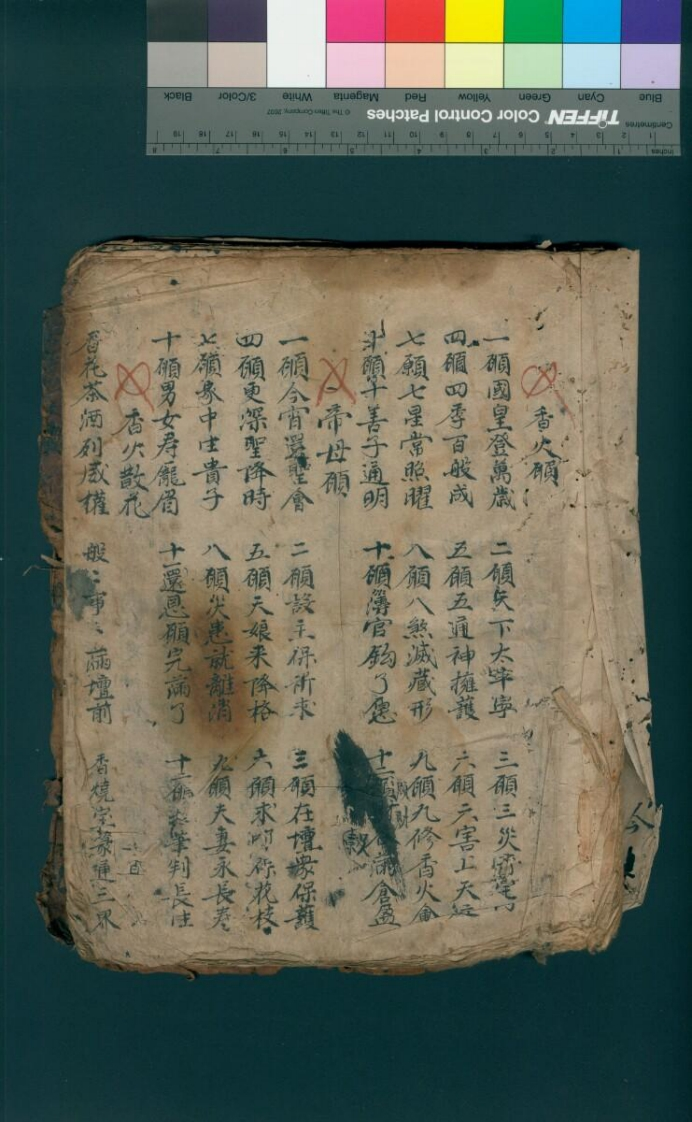 Blue Cyan Green Yellow Red Magenta White 3/Color Black
TIFFEN Color Control Patches © The Tiffen Company, 2007
Centimetres
Inches
香火願
一願國皇登萬歲 二願天下太平寧 三願三災
四願四季百般成 五願五通神擁護 六願六害上天
七願七星常照曜 八願八煞滅藏形 九願九修香火會
十願十善子通明 十一願簿官鈎了愿 十二願 滿倉盈
帝母願
一願今宵還聖會 二願設主保所求 三願在壇衆保護
四願更深聖降時 五願天娘來降格 六願求 花枝
七願家中生貴子 八願災患就離消 九願夫妻永長壽
十願男女寿龍眉 十一還恩願完滿了 十二 筆判長生
香火散花
香花茶酒列成權 般〻事〻滿壇前 香燒室 通三界